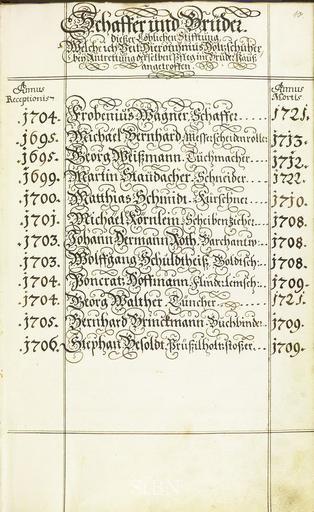 Schaffer und Brüder.
Dieser Löblichen Stifftung,
Welche ich Veit Hieronÿmus Holzschüher,
beÿ Antrettung derselben Pfleg im Brüder Hauß
angetroffen.
Annus Receptionis
Annus Mortis
1704. Frobenius Wagner Schaffer 1721.
1695. Michael Bernhard Messerscheidnröller 1713.
1695. Georg Weißmann Tuchmacher 1712.
1699. Martin Staudacher Schneider 1722.
1700. Matthias Schmidt Kürschner 1710.
1701. Michael Körnlein Scheibenzieher 1708.
1703. Johann Hermann Roth Barchantw: 1708.
1703. Wolffgang Schültheiß Goldsch: 1708.
1704. Poncratz Hoffmann Flinderleinsch: 1709.
1704. Georg Walther Tüncher 1721.
1705. Bernhard Brinckmann Buchbinder 1709.
1706. Stephan Besoldt 1709.
StBN